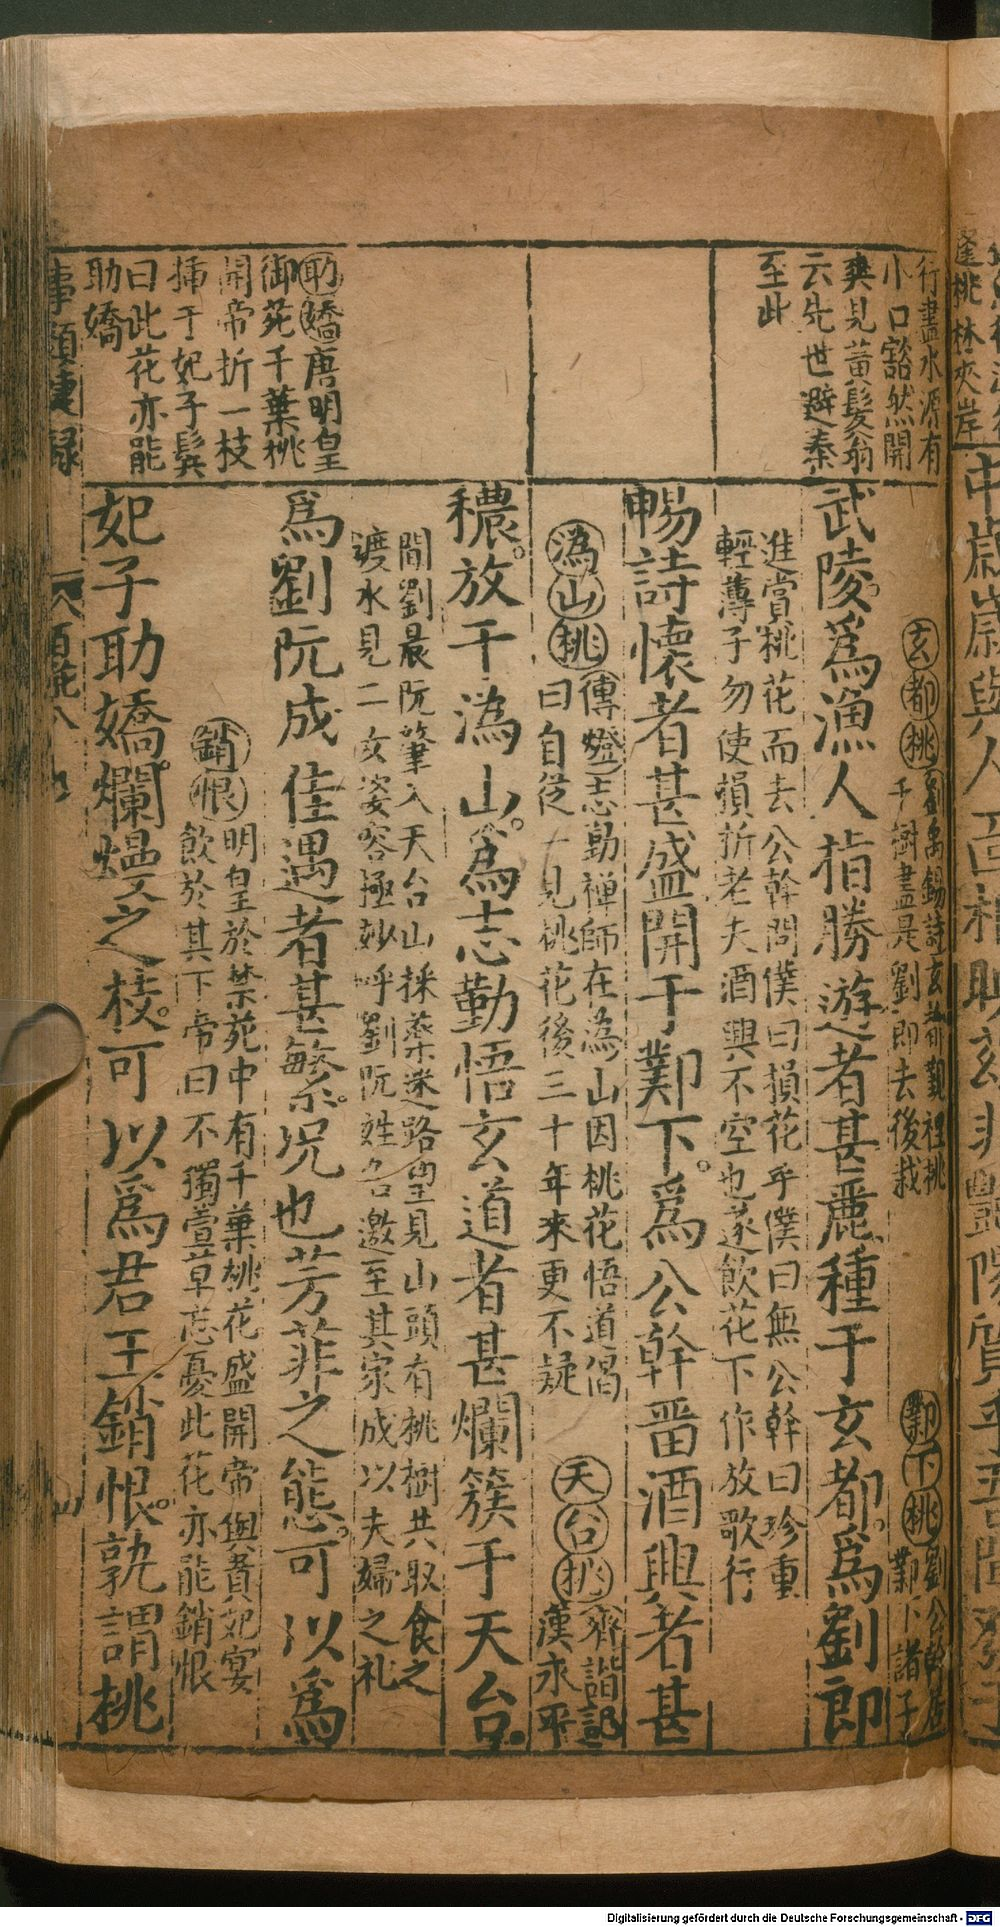 行盡水源有
小口豁然開
爽見黃髮翁
云先世避秦
至此
助嬌唐明皇
御苑千葉桃
開帝折一枝
插于妃子髻
曰此花亦能
助嬌
玄都桃劉禹錫詩玄都觀裡桃
千樹盡是劉郎去後栽
鄴下桃劉公幹居
鄴下諸子
武陵為漁人指勝遊者甚麗種于玄都為劉郎
進賞桃花而去公幹問僕曰損花乎僕曰無公幹曰珍重
輕薄子勿使損折老夫酒興不空也遂飲花下作放歌行
暢詩懷者甚盛開于鄴下為公幹畱酒興者甚
溈山桃傳燈志勤禪師在溈山因桃花悟道偈
曰自從一見桃花後三十年來更不疑
天台桃齊諧記
漢永平
穠放于溈山為志勤悟玄道者甚爛簇于天台
間劉晨阮肇入天台山採藥迷路望見山頭有桃樹共取食之
渡水見二女姿容極妙呼劉阮姓名邀至其家成以夫婦之礼
為劉阮成佳遇者甚繁况也芳菲之態可以為
銷恨明皇於禁苑中有千葉桃花盛開帝與貴妃宴
飲於其下帝曰不獨萱草忘憂此花亦能銷恨
妃子助嬌爛熳之枝可以為君王銷恨孰謂桃
事類捷錄
逢桃林夾岸
Digitalisierung gefördert durch die Deutsche Forschungsgemeinschaft - DFG